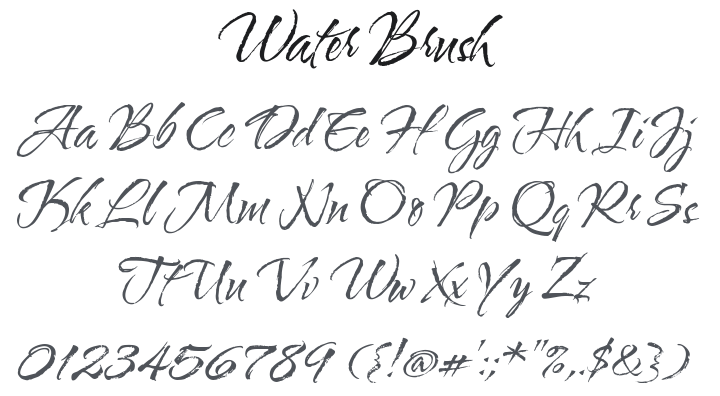 Water Brush
Aa Bb Cc Dd Ee Ff Gg Hh Ii Jj
Kk Ll Mm Nn Oo Pp Qq Rr Ss
Tt Uu Vv Ww Xx Yy Zz
0123456789 ({!@#':;*"%,.$&})